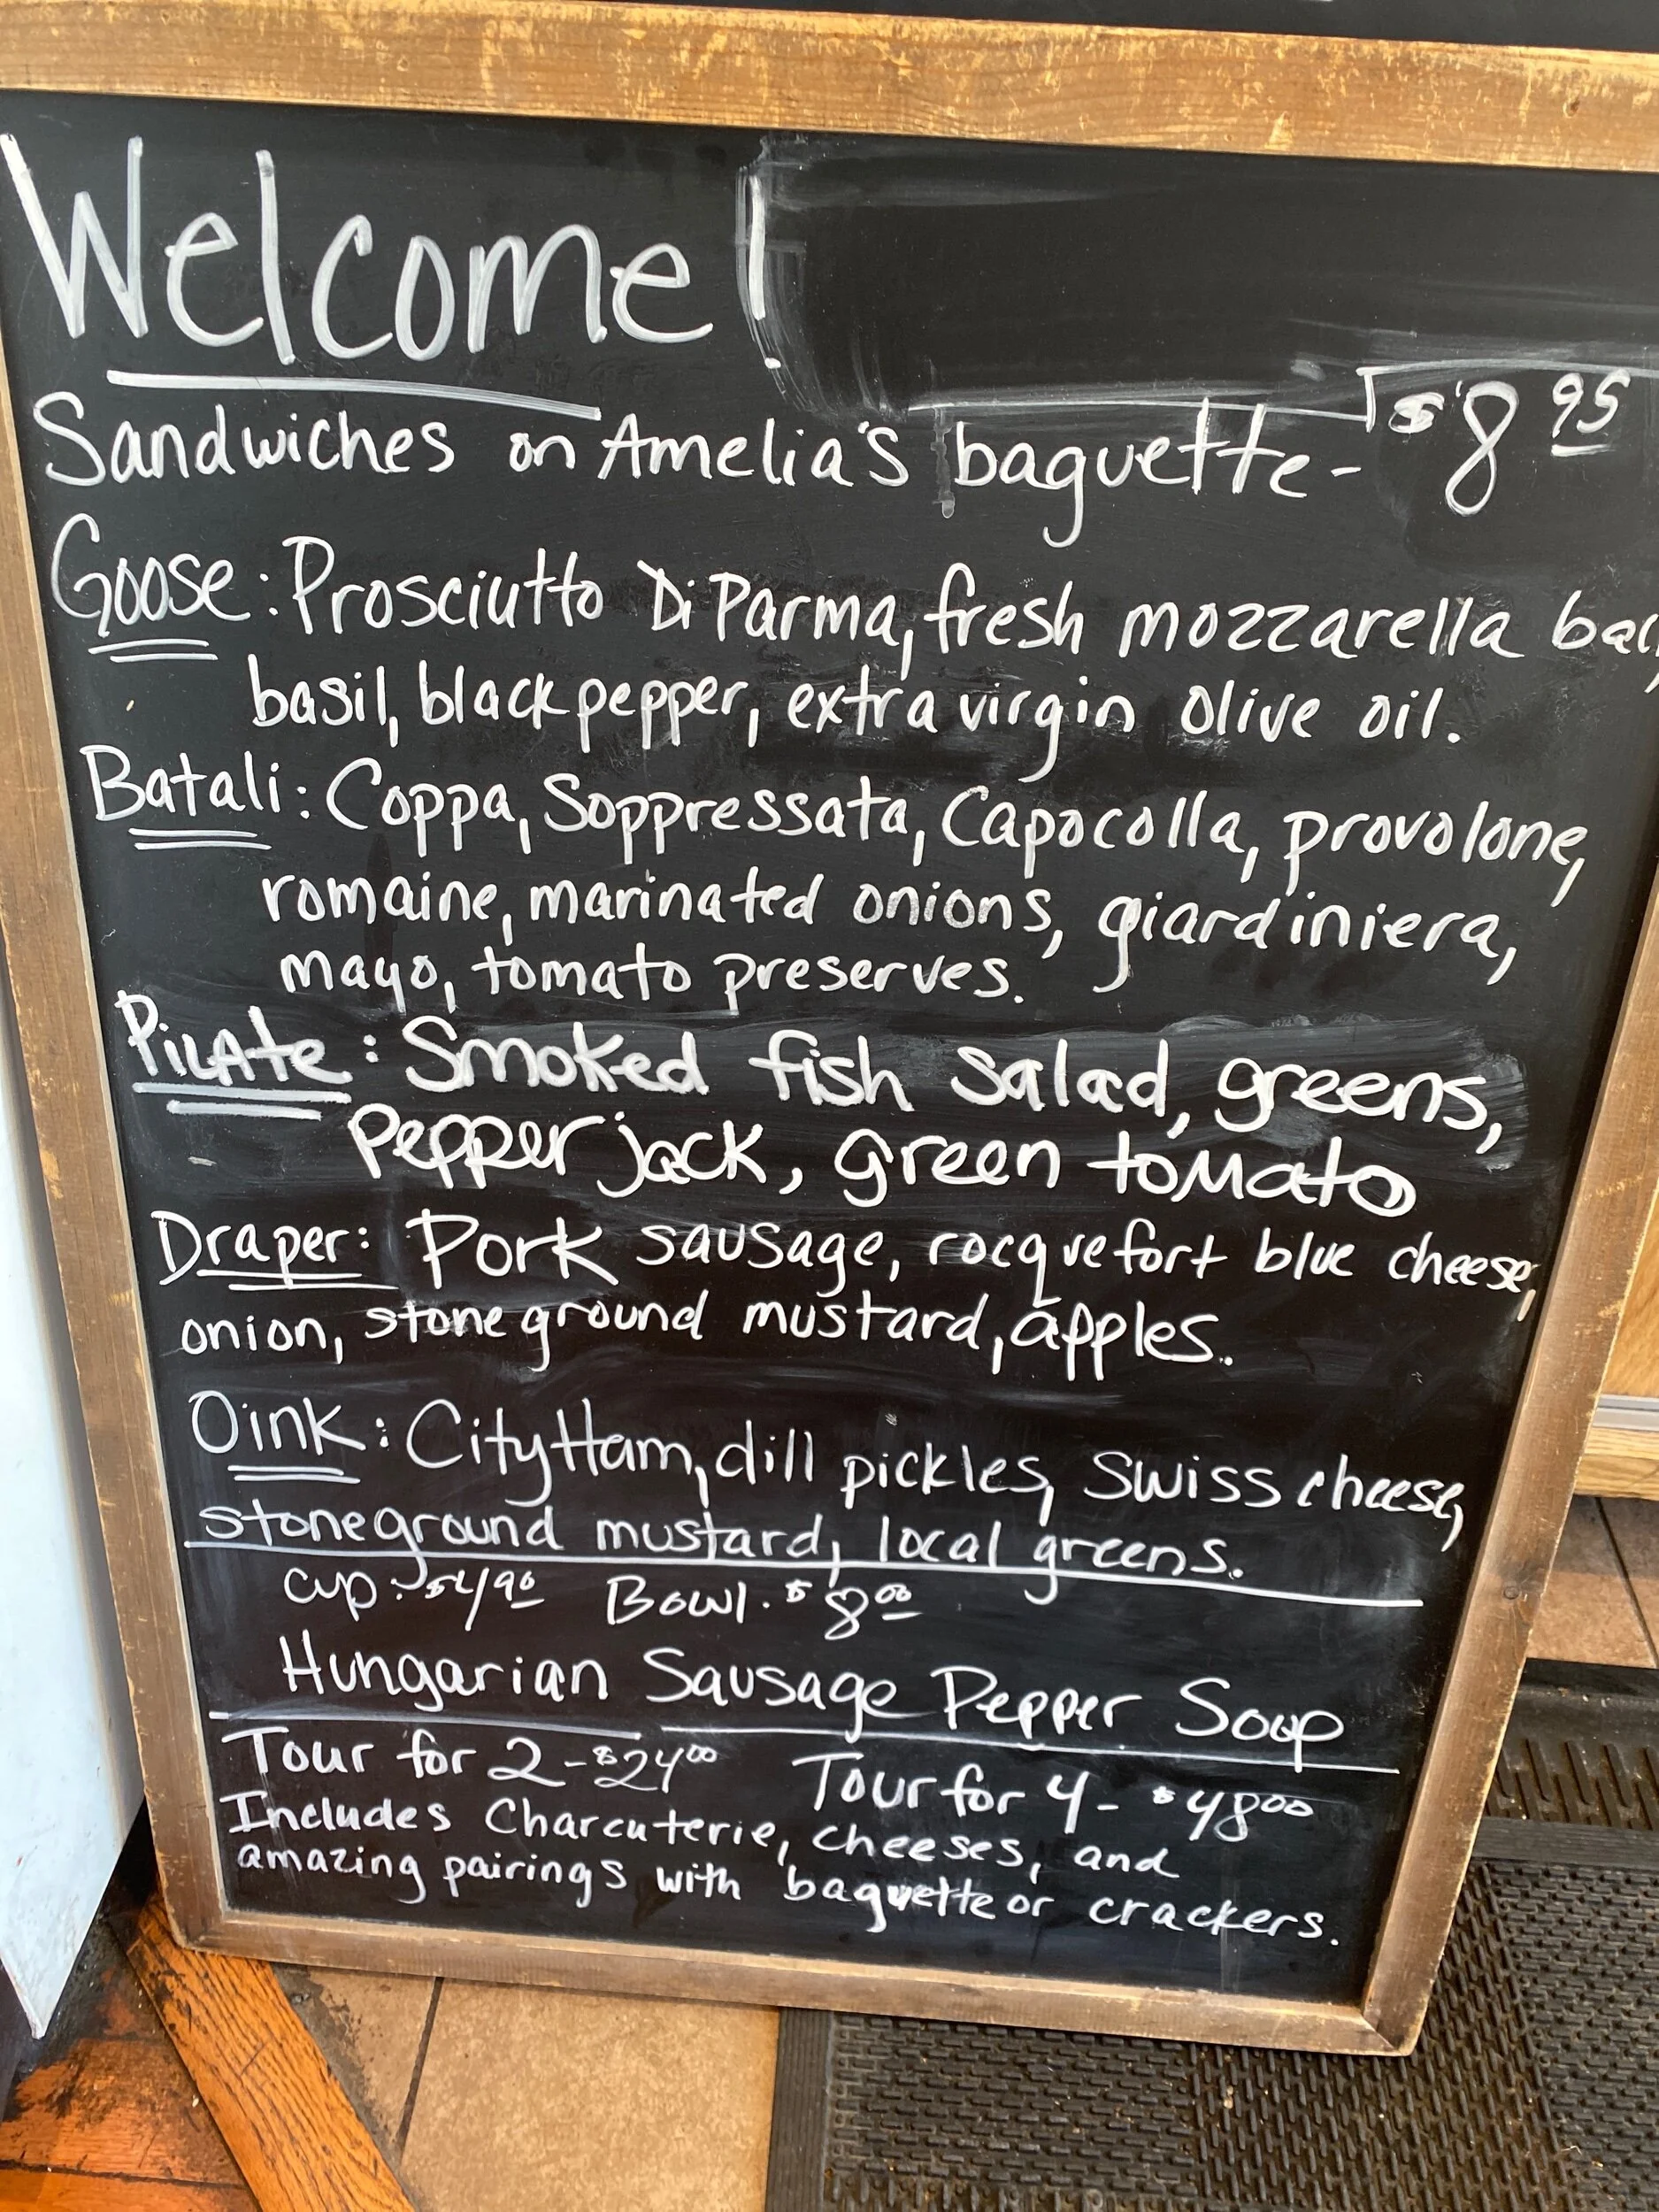 Welcome!
Sandwiches on Amelia's baguette - $8.95
Goose: Prosciutto Di Parma, fresh mozzarella
basil, black pepper, extra virgin olive oil.
Batali: Coppa, Soppressata, Capocolla, provolone,
romaine, marinated onions, giardiniera,
mayo, tomato preserves.
Pilate: Smoked fish salad, greens,
Pepper jack, green tomato
Draper: Pork sausage, rocquefort blue cheese,
onion, stone ground mustard, apples.
Oink: City Ham, dill pickles, Swiss cheese,
stoneground mustard, local greens.
cup: $4.90 Bowl. $8.00
Hungarian Sausage Pepper Soup
Tour for 2 - $24.00 Tour for 4 - $48.00
Includes Charcuterie, cheeses, and
amazing pairings with baguette or crackers.